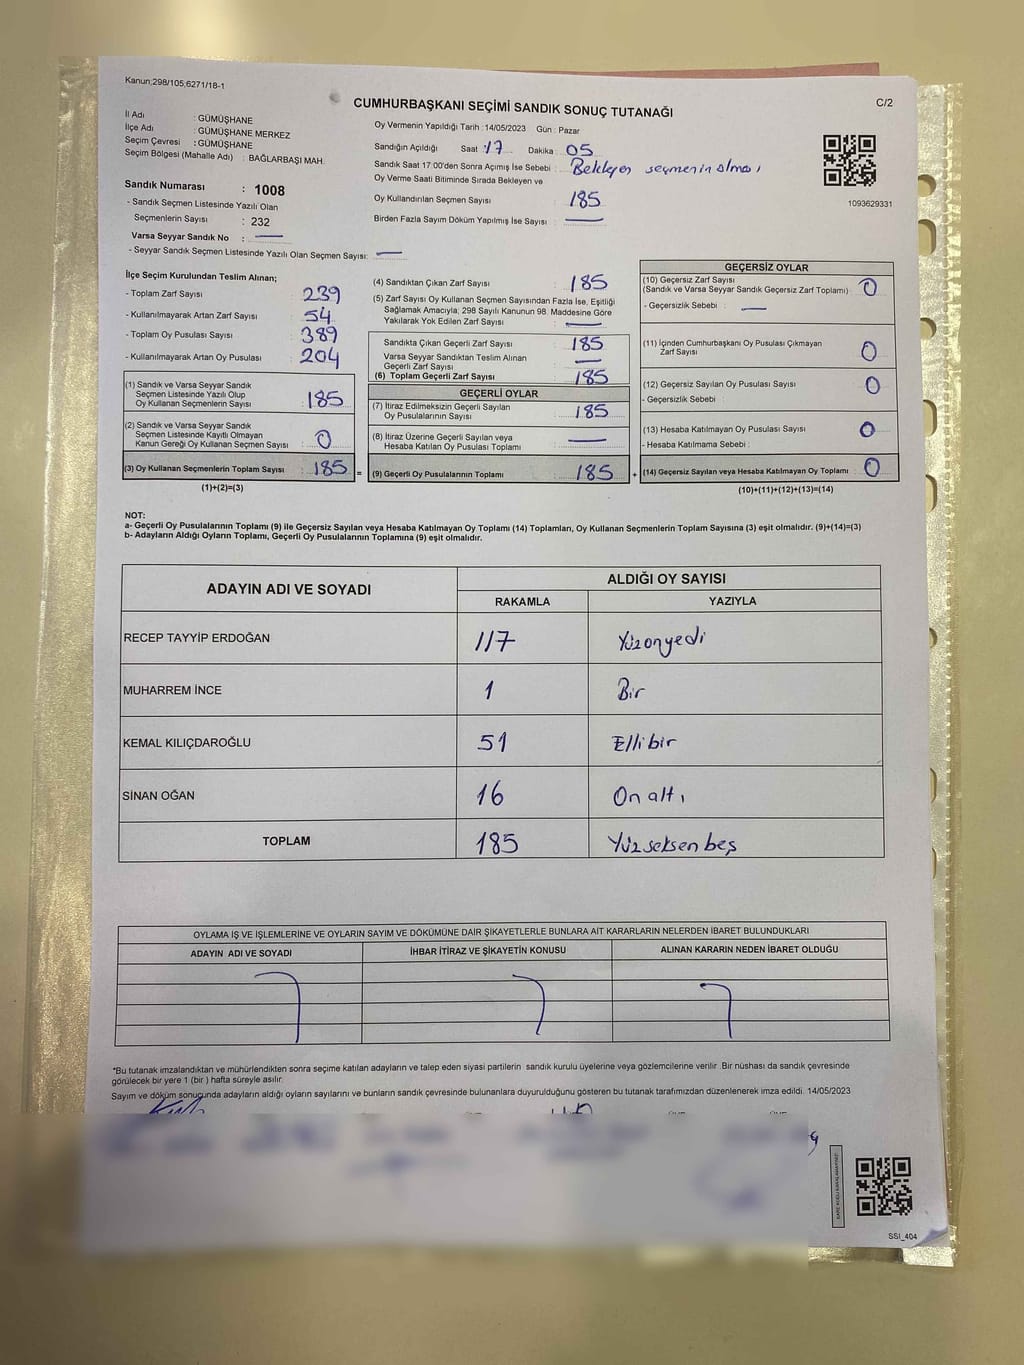 Kanun;298/105;6271/18-1
CUMHURBAŞKANI SEÇİMİ SANDIK SONUÇ TUTANAĞI
C/2
İl Adı : GÜMÜŞHANE
İlçe Adı : GÜMÜŞHANE MERKEZ
Seçim Çevresi : GÜMÜŞHANE
Seçim Bölgesi (Mahalle Adı) : BAĞLARBAŞI MAH.
Sandık Numarası : 1008
- Sandık Seçmen Listesinde Yazılı Olan
Seçmenlerin Sayısı : 232
Varsa Seyyar Sandık No :
- Seyyar Sandık Seçmen Listesinde Yazılı Olan Seçmen Sayısı:
Oy Vermenin Yapıldığı Tarih : 14/05/2023 Gün : Pazar
Sandığın Açıldığı Saat : 17 Dakika : 05
Sandık Saat 17:00'den Sonra Açımış İse Sebebi : Bekleyen seçmenin olması
Oy Verme Saati Bitiminde Sırada Bekleyen ve
Oy Kullandırılan Seçmen Sayısı : 185
Birden Fazla Sayım Döküm Yapılmış İse Sayısı :
1093629331
İlçe Seçim Kurulundan Teslim Alınan;
- Toplam Zarf Sayısı : 239
- Kullanılmayarak Artan Zarf Sayısı : 54
- Toplam Oy Pusulası Sayısı : 389
- Kullanılmayarak Artan Oy Pusulası : 204
(1) Sandık ve Varsa Seyyar Sandık
Seçmen Listesinde Yazılı Olup
Oy Kullanan Seçmenlerin Sayısı : 185
(2) Sandık ve Varsa Seyyar Sandık
Seçmen Listesinde Kayıtlı Olmayan
Kanun Gereği Oy Kullanan Seçmen Sayısı : 0
(3) Oy Kullanan Seçmenlerin Toplam Sayısı : 185 =
(1)+(2)=(3)
(4) Sandıktan Çıkan Zarf Sayısı : 185
(5) Zarf Sayısı Oy Kullanan Seçmen Sayısından Fazla İse, Eşitliği
Sağlamak Amacıyla; 298 Sayılı Kanunun 98. Maddesine Göre
Yakılarak Yok Edilen Zarf Sayısı :
Sandıkta Çıkan Geçerli Zarf Sayısı : 185
Varsa Seyyar Sandıktan Teslim Alınan
Geçerli Zarf Sayısı :
(6) Toplam Geçerli Zarf Sayısı : 185
GEÇERLİ OYLAR
(7) İtiraz Edilmeksizin Geçerli Sayılan
Oy Pusulalarının Sayısı : 185
(8) İtiraz Üzerine Geçerli Sayılan veya
Hesaba Katılan Oy Pusulası Toplamı :
(9) Geçerli Oy Pusulalarının Toplamı : 185 +
GEÇERSİZ OYLAR
(10) Geçersiz Zarf Sayısı
(Sandık ve Varsa Seyyar Sandık Geçersiz Zarf Toplamı) : 0
- Geçersizlik Sebebi :
(11) İçinden Cumhurbaşkanı Oy Pusulası Çıkmayan
Zarf Sayısı : 0
(12) Geçersiz Sayılan Oy Pusulası Sayısı : 0
- Geçersizlik Sebebi
(13) Hesaba Katılmayan Oy Pusulası Sayısı : 0
- Hesaba Katılmama Sebebi :
(14) Geçersiz Sayılan veya Hesaba Katılmayan Oy Toplamı : 0
(10)+(11)+(12)+(13)=(14)
NOT:
a- Geçerli Oy Pusulalarının Toplamı (9) ile Geçersiz Sayılan veya Hesaba Katılmayan Oy Toplamı (14) Toplamları, Oy Kullanan Seçmenlerin Toplam Sayısına (3) eşit olmalıdır. (9)+(14)=(3)
b- Adayların Aldığı Oyların Toplamı, Geçerli Oy Pusulalarının Toplamına (9) eşit olmalıdır.
ADAYIN ADI VE SOYADI
ALDIĞI OY SAYISI
RAKAMLA YAZIYLA
RECEP TAYYİP ERDOĞAN 117 Yüzonyedi
MUHARREM İNCE 1 Bir
KEMAL KILIÇDAROĞLU 51 Ellibir
SİNAN OĞAN 16 On altı
TOPLAM 185 Yüzseksen beş
OYLAMA İŞ VE İŞLEMLERİNE VE OYLARIN SAYIM VE DÖKÜMÜNE DAİR ŞİKAYETLERLE BUNLARA AİT KARARLARIN NELERDEN İBARET BULUNDUKLARI
ADAYIN ADI VE SOYADI İHBAR İTİRAZ VE ŞİKAYETİN KONUSU ALINAN KARARIN NEDEN İBARET OLDUĞU
*Bu tutanak imzalandıktan ve mühürlendikten sonra seçime katılan adayların ve talep eden siyasi partilerin sandık kurulu üyelerine veya gözlemcilerine verilir. Bir nüshası da sandık çevresinde
görülecek bir yere 1 (bir ) hafta süreyle asılır.
Sayım ve döküm sonucunda adayların aldığı oyların sayılarını ve bunların sandık çevresinde bulunanlara duyurulduğunu gösteren bu tutanak tarafımızdan düzenlenerek imza edildi. 14/05/2023
SSI_404